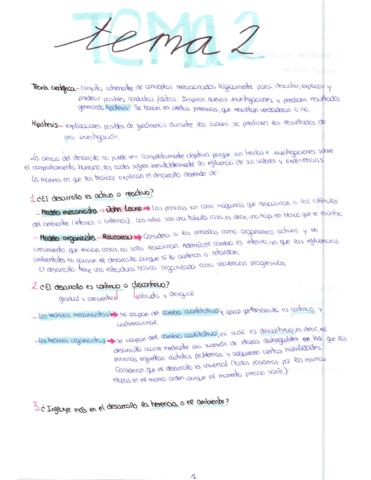 TEMA 2
tema 2
Teoría científica → conjunto coherente de conceptos relacionados lógicamente para describir, explicar y
predecir posibles conductas (datos). Inspiran nuevas investigaciones y predicen resultados
generando hipótesis. Se basan en ciertas premisas, que resultan verdaderas o no.
Hipótesis → explicaciones posibles de fenómenos durante los cuales se predicen los resultados de
una investigación.
La ciencia del desarrollo no puede ser completamente objetiva porque son teorías e investigaciones sobre
el comportamiento humano, las cuales sufren inevitablemente la influencia de sus valores y experiencias.
La manera en que los teóricos explican el desarrollo depende de:
1. ¿El desarrollo es activo o reactivo?
- Modelo mecanicista → John Locke → Las personas son como máquinas que reaccionan a los estímulos
del ambiente (internos o externos). Los niños son una tabula rasa, es decir, una hoja en blanco que se escribe.
- Modelo organicista → Rousseau → Considera a las personas como organismos activos y en
crecimiento que inician cosas, no solo reaccionan. Además, el cambio es interno, ya que las influencias
ambientales no causan el desarrollo aunque sí lo aceleran o retardan.
El desarrollo tiene una estructura básica organizada como secuencias progresivas.
2. ¿El desarrollo es continuo o discontinuo?
gradual y creciente
abrupto y desigual
- Los teóricos mecanicistas → se ocupan del cambio cuantitativo y el desarrollo es continuo y
unidireccional.
- Los teóricos organicistas → se ocupan del cambio cualitativo, el cual es discontinuo, es decir, el
desarrollo ocurre mediante una sucesión de etapas distinguibles en las que las
personas enfrentan distintos problemas y adquieren ciertas habilidades.
Consideran que el desarrollo es universal (todos pasamos por las mismas
etapas en el mismo orden aunque el momento preciso varíe).
3. ¿Influye más en el desarrollo la herencia o el ambiente?
1